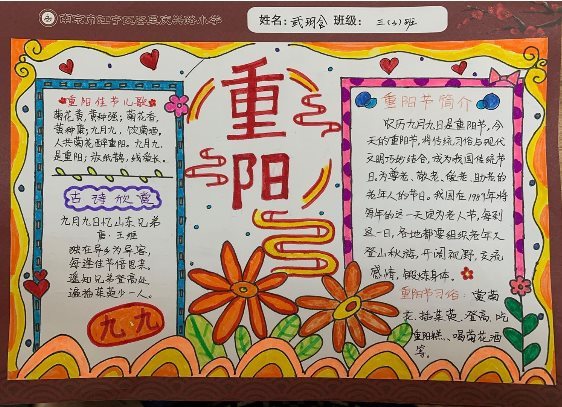 姓名: 武玥含 班级: 三(4)班
重阳佳节儿歌
菊花黄,黄种强;菊花香,
黄种康;九月九,饮菊酒,
人共菊花醉重阳。九月九,
是重阳;放纸鹞,线爱长。
古诗欣赏
九月九日忆山东兄弟
唐·王维
独在异乡为异客,
每逢佳节倍思亲。
遥知兄弟登高处,
遍插茱萸少一人。
九九
重阳
重阳节简介
农历九月九日是重阳节,今
天的重阳节,将传统习俗与现代
文明巧妙结合,成为我国传统节
日。为尊老、敬老、爱老、助老的
老年人的节日。我国在1989年将
每年的这一天定为老人节,每到
这一日,各地都要组织老年人
登山秋游,开阔视野,交流
感情,锻炼身体。
重阳节习俗:赏菊
花、插茱萸、登高、吃
重阳糕、喝菊花酒
等。